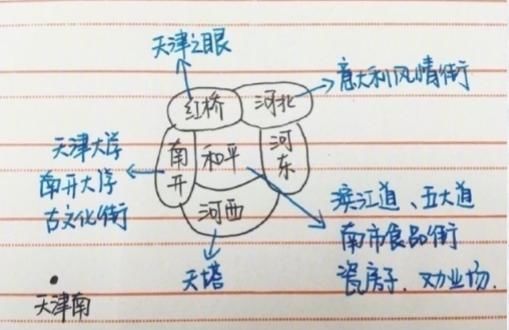 天津之眼
意大利风情街
红桥
河北
天津大学
南开大学
古文化街
南开
和平
河东
河西
滨江道、五大道
南市食品街
瓷房子、劝业场.
天塔
天津南